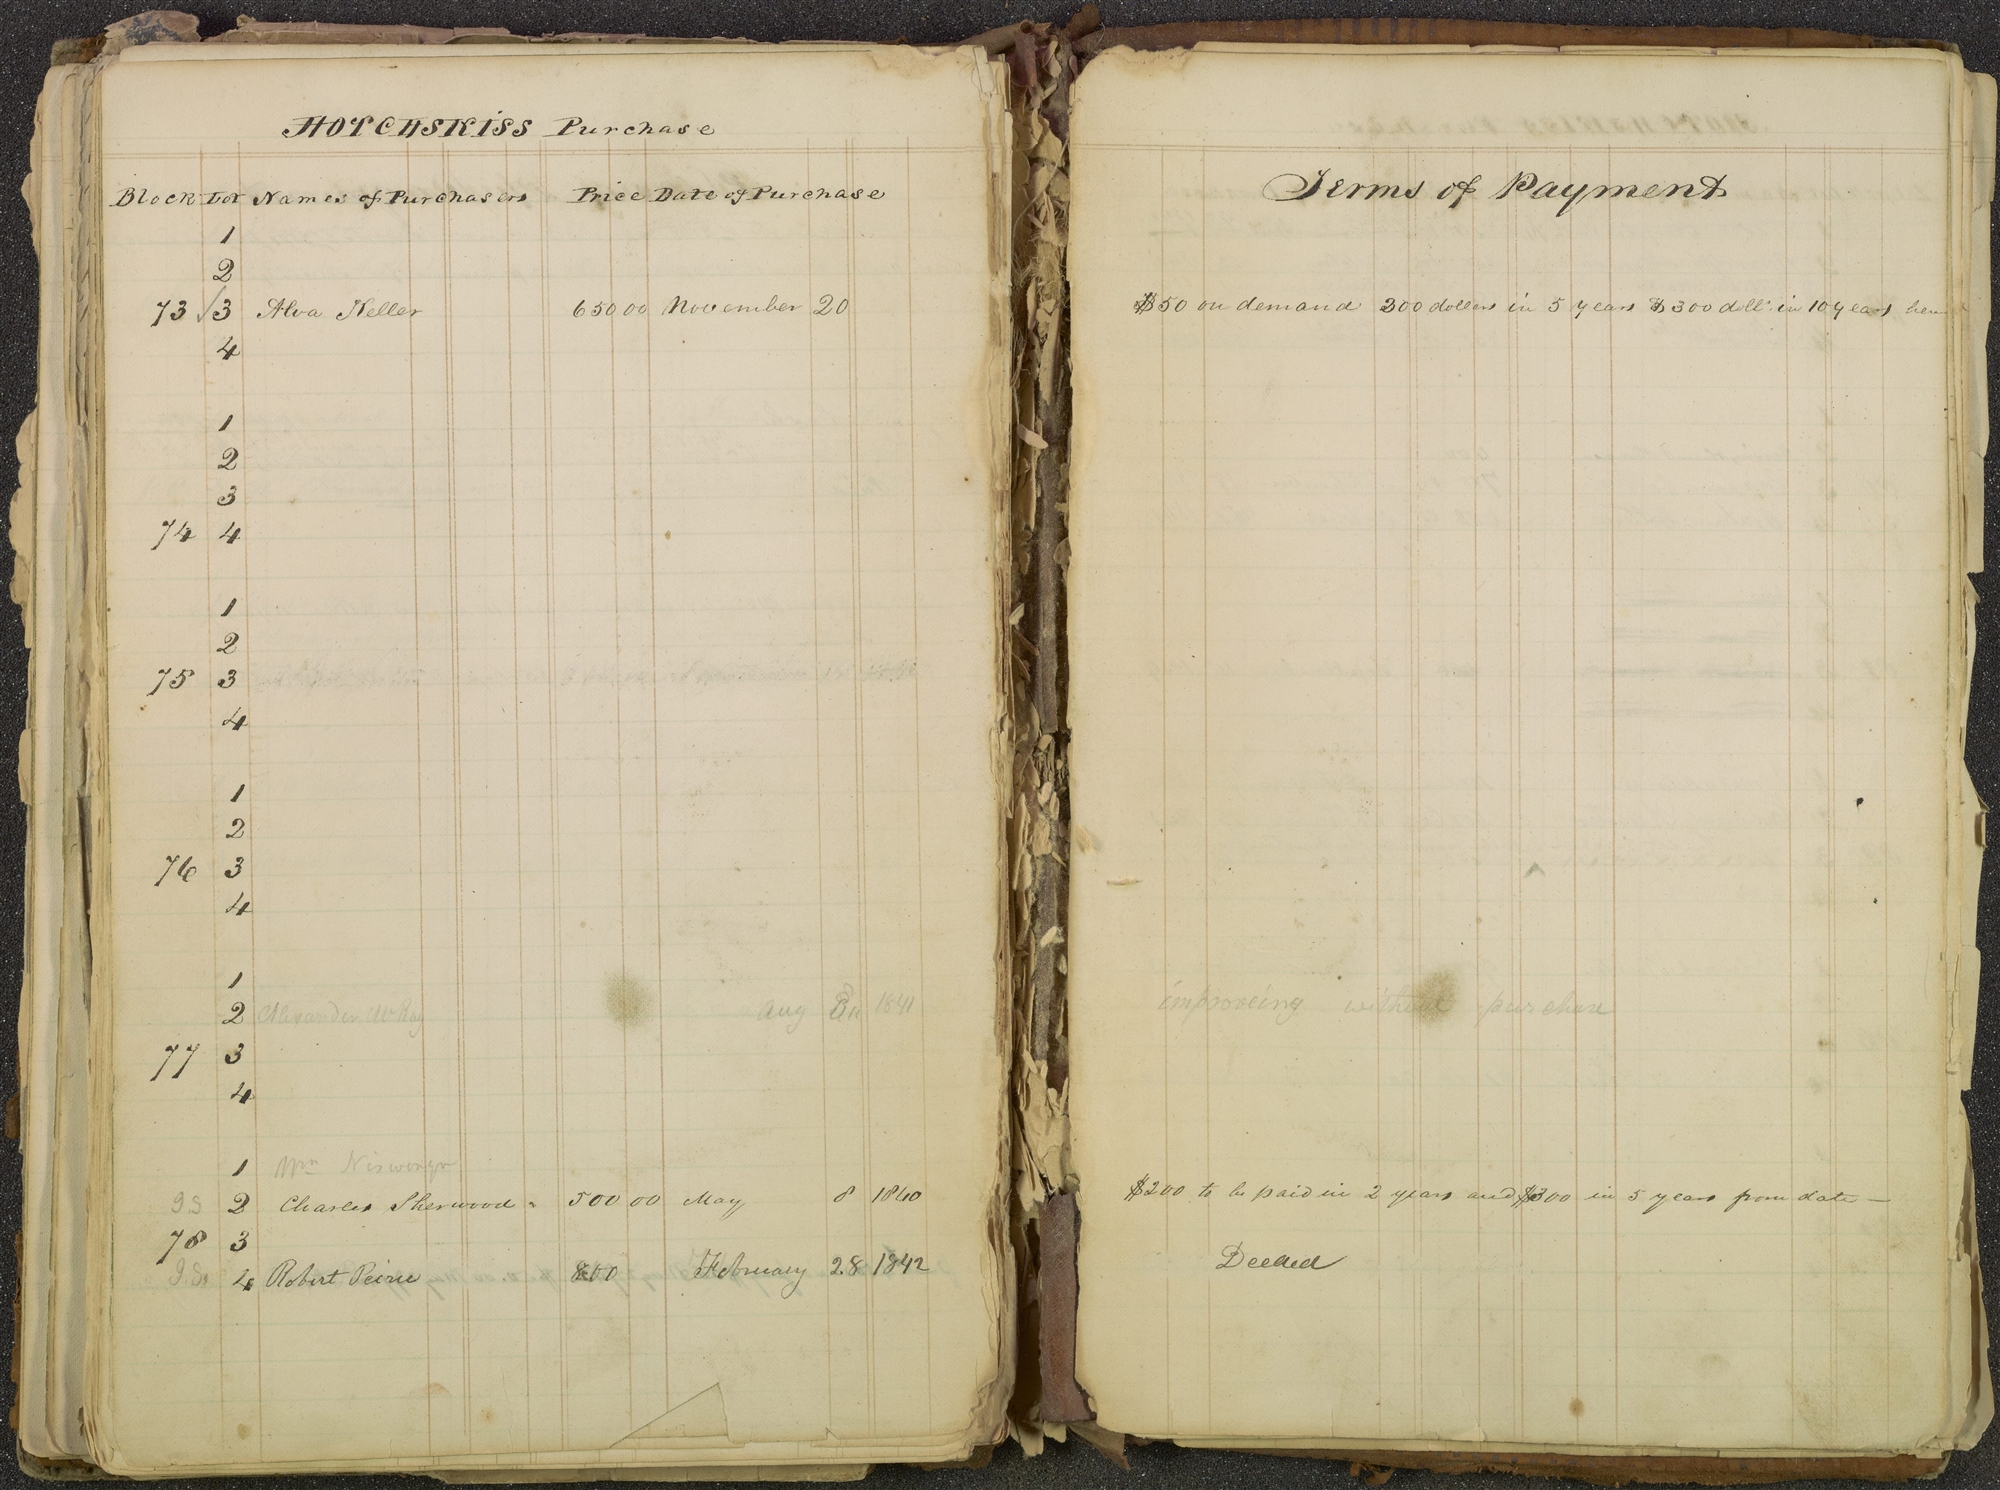 HOTCHSKISS Purchase
Block Lot Names of Purchasers Price Date of Purchase
Terms of Payment
1
2
73 √3 Alva Keller 650 00 November 20 $50 on demand 300 dollers in 5 years $300 doll in 10 years
4
1
2
3
74 4
1
2
75 3
4
1
2
76 3
4
1
2 Alexander McRay Aug 1841 improveing without purchase
77 3
4
1 Wm Niswonger
2 Charles Sherwood 500 00 May 8 1840 $200 to be paid in 2 years and $300 in 5 years from date
78 3
4 Robert Peirce 800 February 28 1842 Deeded